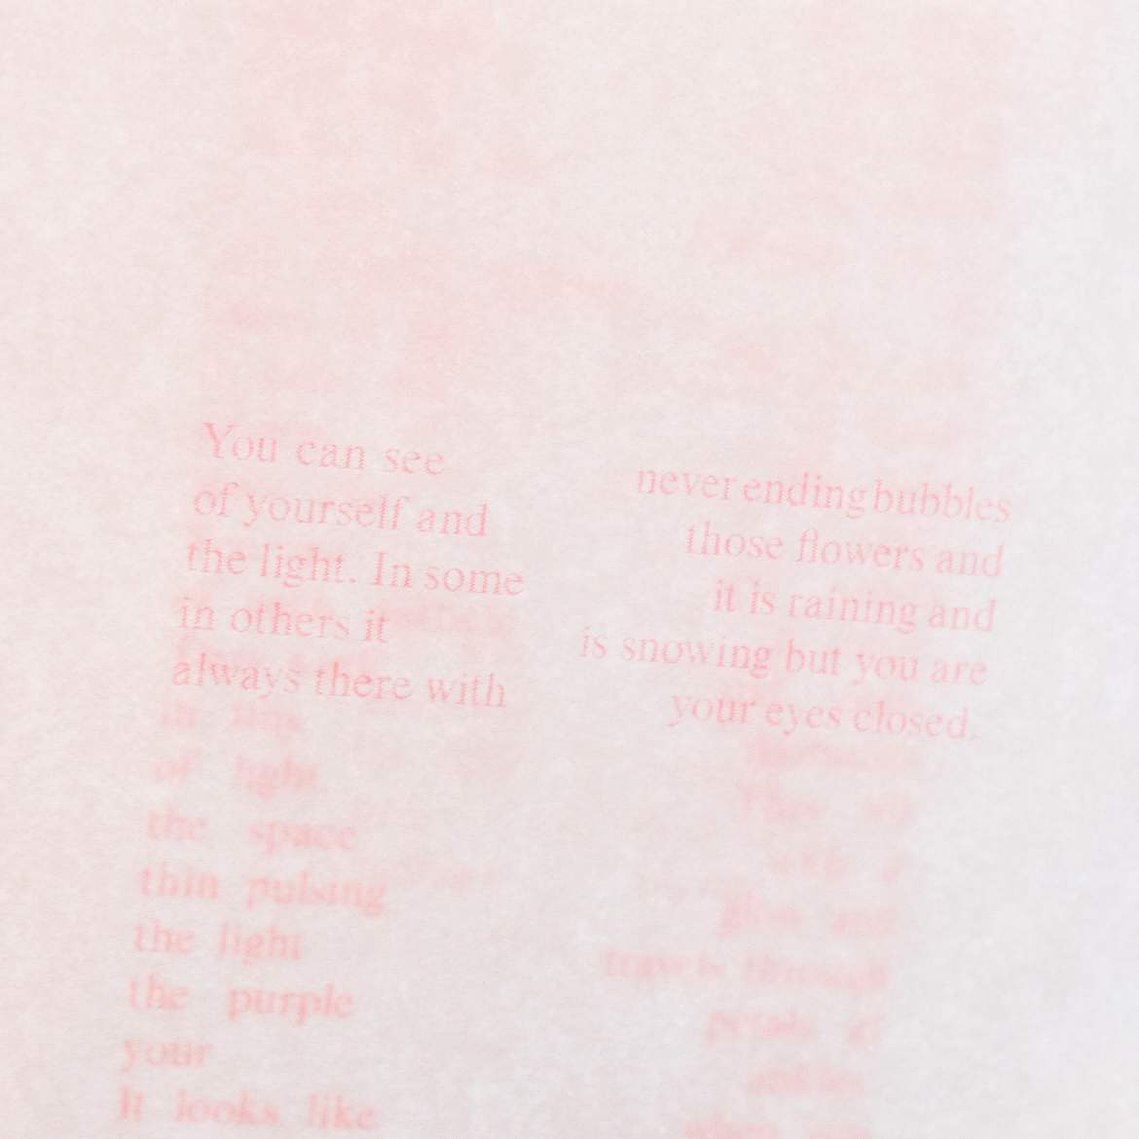 You can see never ending bubbles
of yourself and those flowers and
the light. In some it is raining and
in others it is snowing but you are
always there with your eyes closed.
of light
the space
thin pulsing
the light glow and
the purple travels through
your petals
It looks like